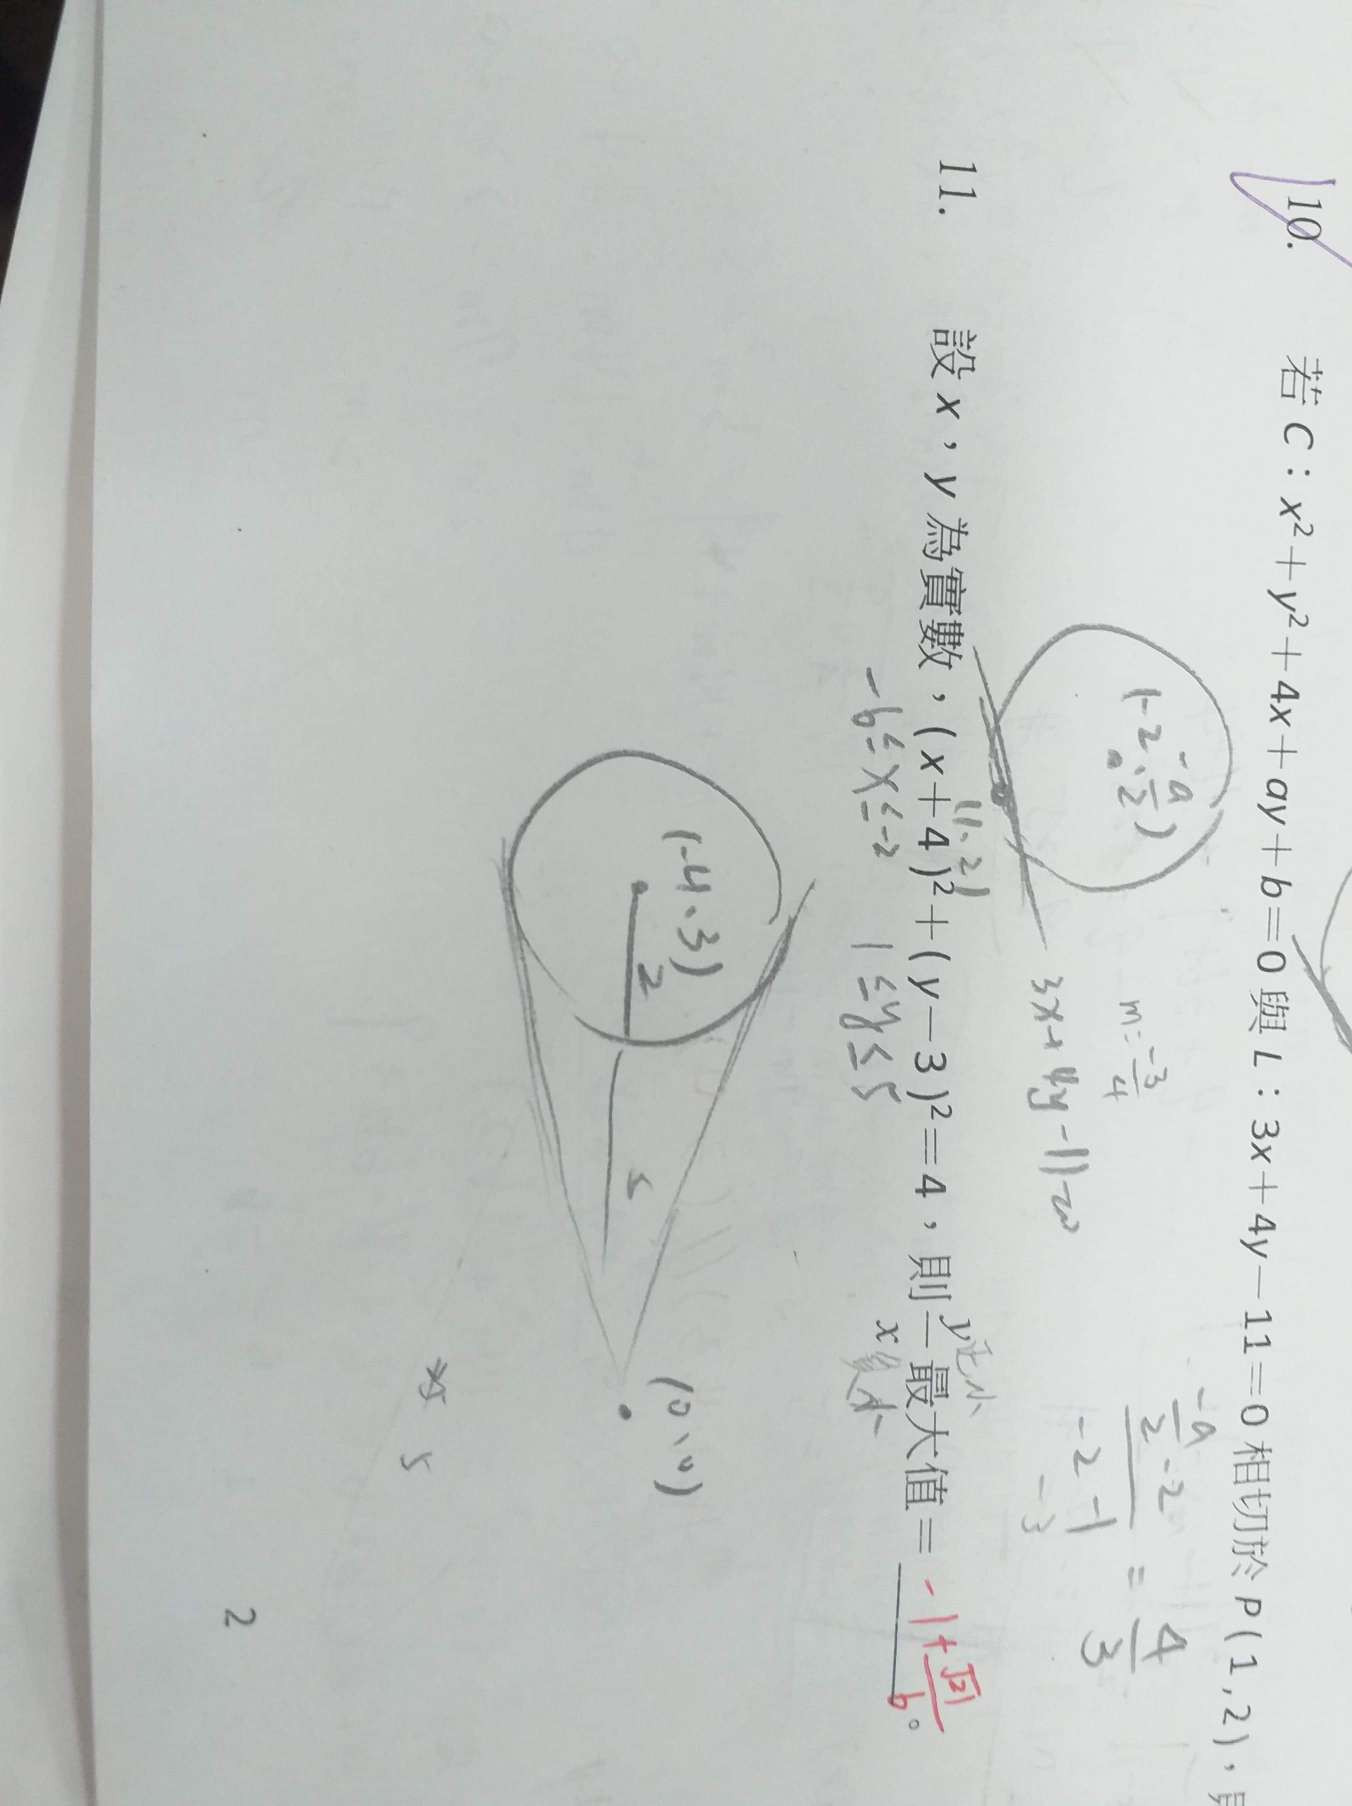 10. 若 C：x²＋y²＋4x＋ay＋b＝0 與 L：3x＋4y－11＝0 相切於 P(1,2)，
(-2, -a/2)
m: -3/4
(-a/2 -2)/(-2-1) = 4/3
-3
(1,2)
3x+4y-11=0
11. 設 x，y 為實數，(x＋4)²＋(y－3)²＝4，則 y/x 最大值＝ -1+√21/6。
-6≤x≤-2 1≤y≤5
(-4,3)
2
5
(0,0)
5
2